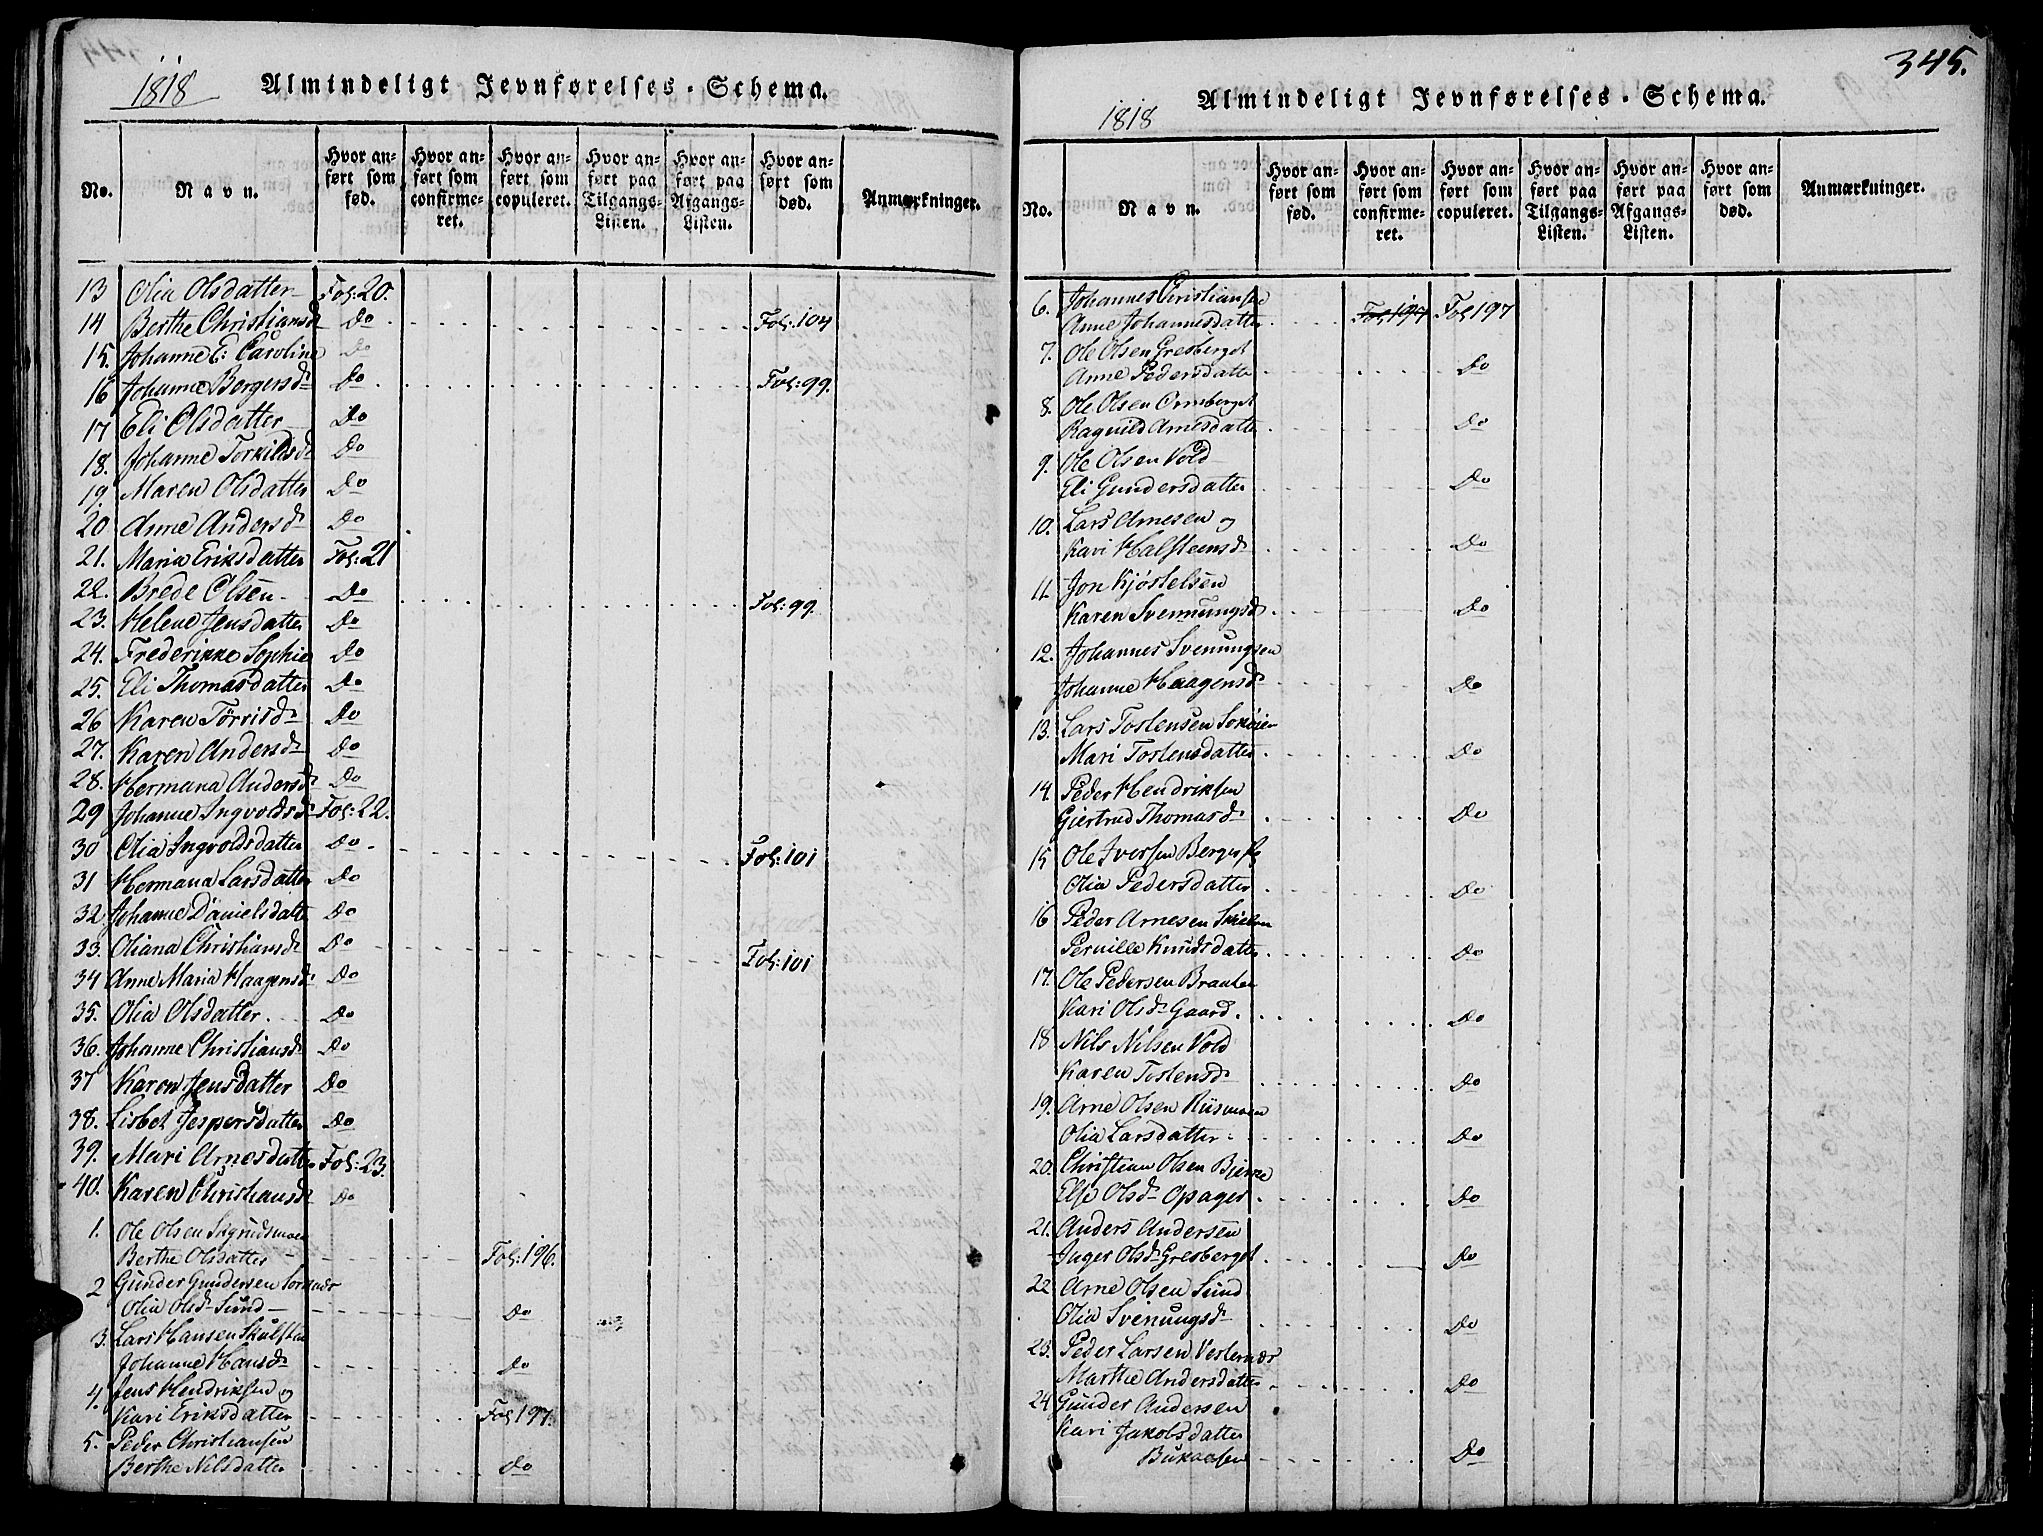 1818 Almindeligt Jevnførelses-Schema.
No. Navn. Hvor anført som fød. Hvor anført som confirmeret. Hvor anført som copuleret. Hvor anført paa Tilgangs-Listen. Hvor anført paa Afgangs-Listen. Hvor anført som død. Anmærkninger.
13 Olia Olsdatter Fol: 20.
14 Berthe Christiansd Do Fol: 104
15. Johanne E: Caroline Do
16 Johanne Borgersd Do Fol: 99.
17 Eli Olsdatter Do
18. Johanne Torkildsd Do
19. Maren Olsdatter Do
20 Anne Andersd Do
21. Maria Eriksdatter Fol: 21
22. Brede Olsen Do Fol: 99.
23. Helene Jensdatter Do
24. Frederikke Sophie Do
25. Eli Thomasdatter Do
26 Karen Törrisd Do
27. Karen Andersd Do
28. Hermana Andersd Do
29 Johanne Ingvoldsd Fol: 22.
30 Olia Ingvoldsdatter Do Fol: 101
31 Hermana Larsdatter Do
32 Johanne Danielsdatt Do
33. Oliana Christiansd Do Fol: 101
34 Anne Maria Haagensd Do
35. Olia Olsdatter. Do
36. Johanne Christiansd Do
37 Karen Jensdatter Do
38. Lisbet Jespersdatter Do
39. Mari Arnesdatter Fol: 23.
40. Karen Christiansd Do
1. Ole Olsen Sigrudsmoen
Berthe Olsdatter Fol: 196.
2 Gunder Gundersen Sorknær
Olia Olsd Sund Do
3. Lars Hansen Skulstad
Johanne Hansd Do
4. Jens Hendriksen og
Kari Eriksdatter Fol 197.
5. Peder Christiansen
Berthe Nilsdatter Do
345.
1818 Almindeligt Jevnførelses-Schema.
No. Navn. Hvor anført som fød. Hvor anført som confirmeret. Hvor anført som copuleret. Hvor anført paa Tilgangs-Listen. Hvor anført paa Afgangs-Listen. Hvor anført som død. Anmærkninger.
6. Johannes Christiansen
Anne Johannesdatter Fol 197 Fol 197
7. Ole Olsen Gresberget
Anne Pedersdatter Do
8. Ole Olsen Ornsberget
Ragnild Arnesdatter Do
9. Ole Olsen Vold
Eli Gundersdatter Do
10. Lars Arnesen og
Kari Halsteensd Do
11. Jon Kjöstelsen
Karen Svennungsd Do
12. Johannes Svenungsen
Johanne Haagensd Do
13. Lars Tostensen
Mari Tostensdatter Do
14. Peder Hendriksen
Giertrud Thomasd Do
15 Ole Iversen
Olia Pedersdatter Do
16 Peder Arnesen
Pernille Knudsdatter Do
17. Ole Pedersen Braaten
Kari Olsd Gaard. Do
18 Nils Nilsen Vold
Karen Tostensd Do
19. Arne Olsen Riismoen
Olia Larsdatter Do
20. Christian Olsen Bierne
Else Olsd Opager Do
21. Anders Andersen
Inger Olsd Gresberget Do
22 Arne Olsen Sund
Olia Svenungsd Do
23. Peder Larsen Vesternær
Marthe Andersdatter Do
24 Gunder Andersen
Kari Jakobsdatter
Do